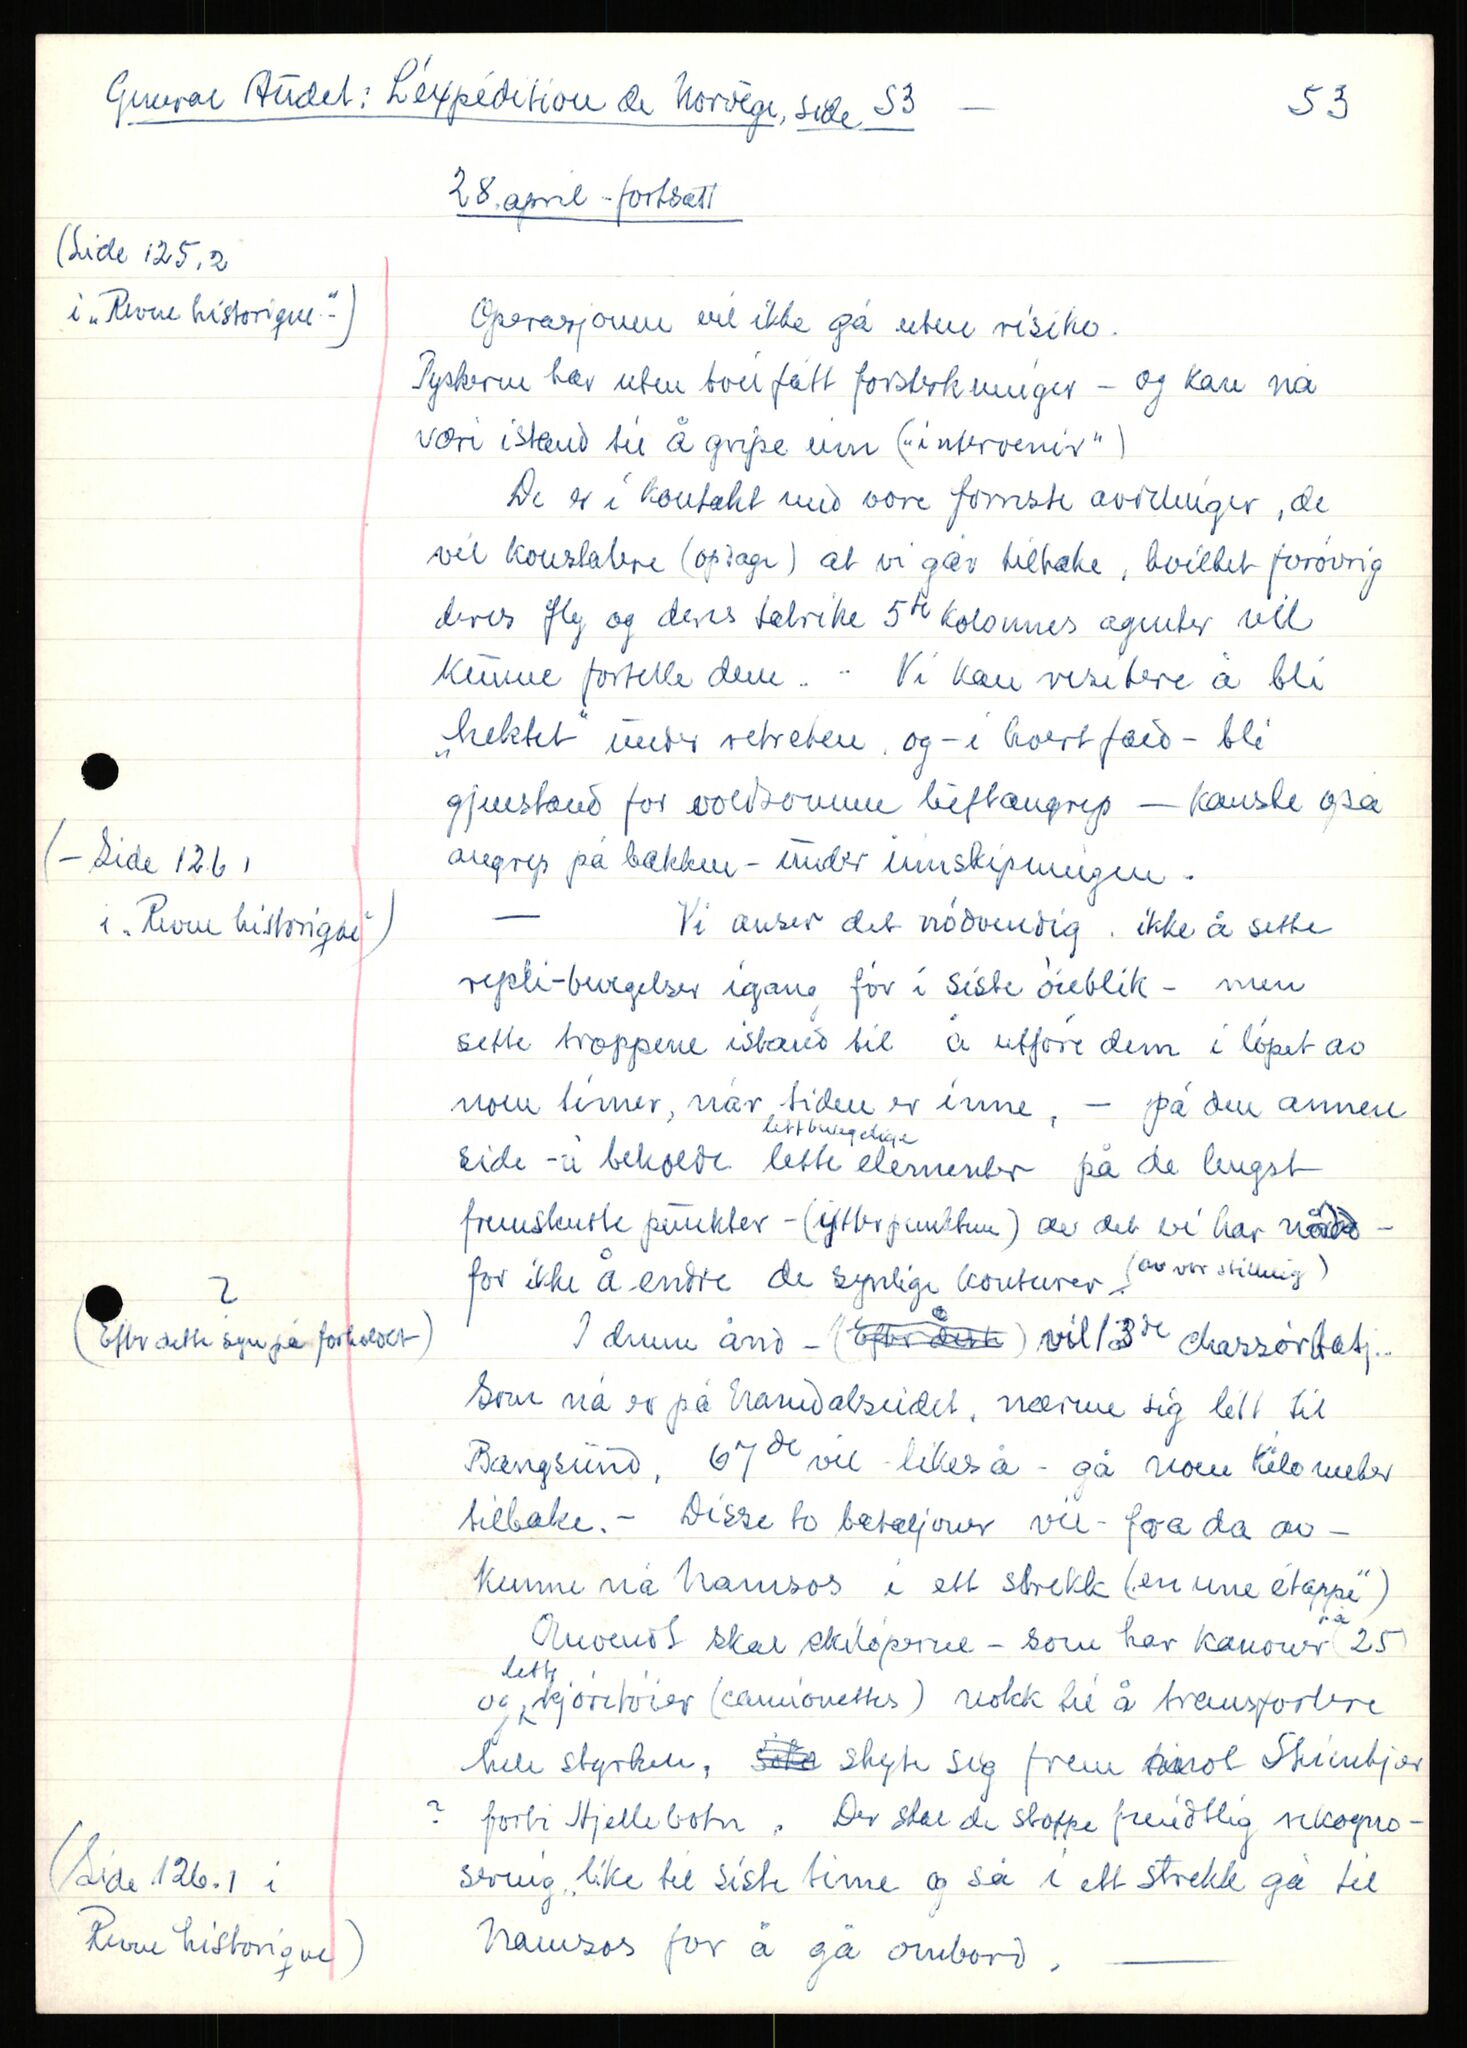 General Audet: L'éxpédition de Norvège, side 53 — 53
28. april - fortsatt
(Side 125,2
i „Revue historique")
Operasjonen vil ikke gå uten risiko.
Tyskerne har uten tvil fått forsterkninger - og kan nå
være istand til å gripe inn („intervenir")
De er i kontakt med våre fornste avdelinger, de
vil konstatere (opdage) at vi går tilbake, hvilket forøvrig
deres fly og deres talrike 5te kolonnes agenter vil
kunne fortelle dem. - Vi kan risikere å bli
„hektet" under retreten, og - i hvert fald - bli
gjenstand for voldsomme luftangrep — kanske også
(- Side 126,1
angrep på bakken - under innskipningen.
i „Revue historique")
— Vi anser det nødvendig, ikke å sette
repli-bevegelser igang før i siste øieblik - men
sette troppene istand til å utføre dem i løpet av
noen timer, når tiden er inne, - på den annen
lettbevegelige
side - å beholde lette elementer på de lengst
fremskutte punkter - (ytterpunktene) av det vi har nådd -
for ikke å endre de synlige konturer. (av vår stilling)
?
(Efter dette syn på forholdet)
I denne ånd - (Efter dette) vil 13de chassørbatj..
som nå er på Namdalseidet, nærme sig litt til
Bangsund, 67de vil - likeså - gå noen kilometer
tilbake. - Disse to bataljoner vil - fra da av -
kunne nå Namsos i ett strekk („en une étappe")
på
Omvendt skal skiløperne - som har kanoner 25
lette
og kjøretøier (camionettes) nokk til å transportere
hele styrken, skyte sig frem imot Steinkjer
? forbi Hjellebotn. Der skal de stoppe fiendtlig rekogno-
(Side 126.1 i
sering, like til siste time og så i ett strekk gå til
Revue historique)
Namsos for å gå ombord. —